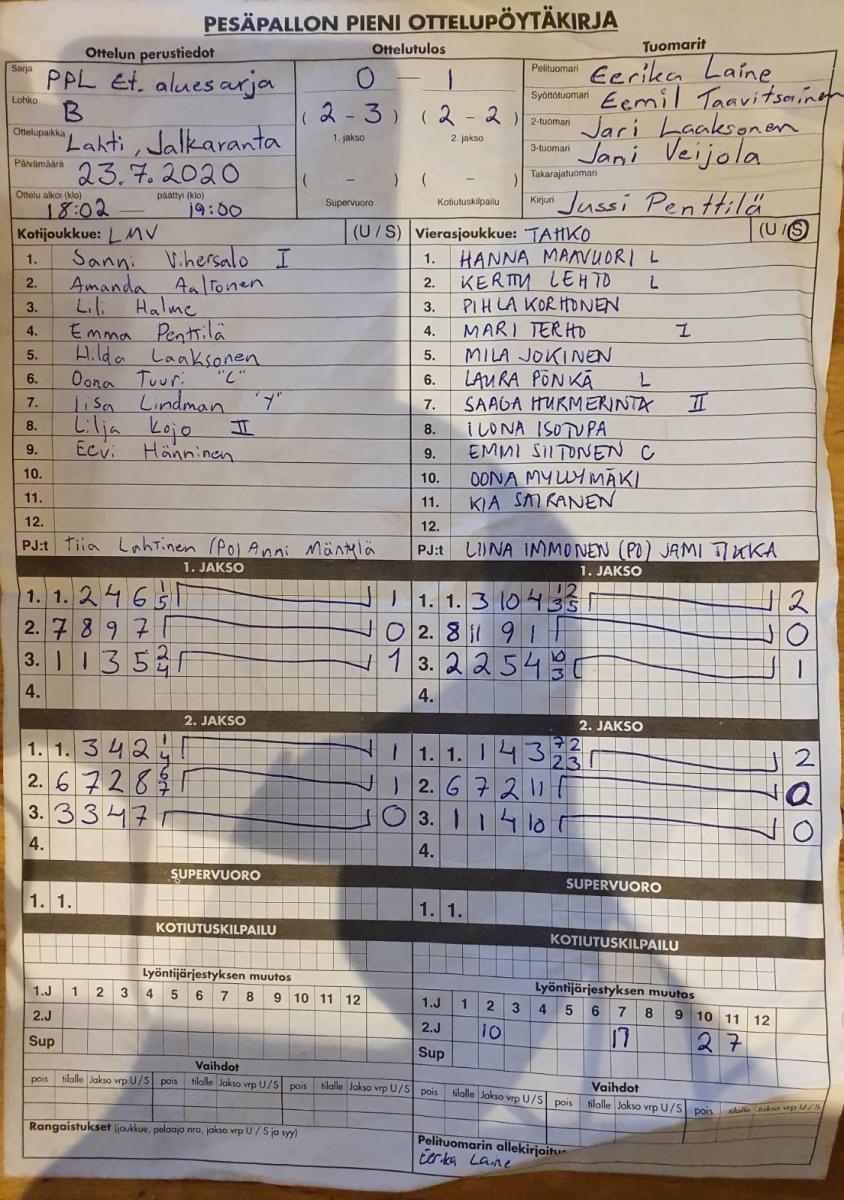 PESÄPALLON PIENI OTTELUPÖYTÄKIRJA
Ottelun perustiedot
Sarja PPL Et. aluesarja
Lohko B
Ottelupaikka Lahti, Jalkaranta
Päivämäärä 23.7.2020
Ottelu alkoi (klo) päättyi (klo)
18:02 — 19:00
Ottelutulos
0 — 1
(2 - 3) (2 - 2)
1. jakso 2. jakso
( – ) ( – )
Supervuoro Kotiutuskilpailu
Tuomarit
Pelituomari Eerika Laine
Syöttötuomari Eemil Taavitsainen
2-tuomari Jari Laaksonen
3-tuomari Jani Veijola
Takarajatuomari
Kirjuri Jussi Penttilä
Kotijoukkue: LMV (U / S)
1. Sanni Vihersalo I
2. Amanda Aaltonen
3. Lili Halme
4. Emma Penttilä
5. Hilda Laaksonen
6. Oona Tuuri "C"
7. Iisa Lindman
8. Lilja Kojo II
9. Eevi Hänninen
10.
11.
12.
PJ:t Tiia Lahtinen (PO) Anni Mäntylä
Vierasjoukkue: TAHKO (U / S)
1. HANNA MAAVUORI L
2. KERTTU LEHTO L
3. PIHLA KORHONEN
4. MARI TERHO I
5. MILA JOKINEN
6. LAURA PÖNKÄ L
7. SAAGA HURMERINTA II
8. ILONA ISOTUPA
9. EMMI SIITONEN C
10. OONA MYLLYMÄKI
11. KIA SAIRANEN
12.
PJ:t LIINA IMMONEN (PO) JAMI TIKKA
1. JAKSO
1. 1. 2 4 6 1/5 1
2. 7 8 9 7 0
3. 1 1 3 5 2/4 1
4.
1. JAKSO
1. 1. 3 10 4 1/3 2/5 2
2. 8 11 9 1 0
3. 2 2 5 4 10/3 1
4.
2. JAKSO
1. 1. 3 4 2 1/4 1
2. 6 7 2 8 6/7 1
3. 3 3 4 7 0
4.
2. JAKSO
1. 1. 1 4 3 7/2 2/3 2
2. 6 7 2 11 0
3. 1 1 4 10 0
4.
SUPERVUORO
1. 1.
SUPERVUORO
1. 1.
KOTIUTUSKILPAILU
KOTIUTUSKILPAILU
Lyöntijärjestyksen muutos
1.J 1 2 3 4 5 6 7 8 9 10 11 12
2.J
Sup
Lyöntijärjestyksen muutos
1.J 1 2 3 4 5 6 7 8 9 10 11 12
2.J 10 2 7
Sup
Vaihdot
pois tilalle Jakso vrp U / S pois tilalle Jakso vrp U / S pois tilalle Jakso vrp U / S
Vaihdot
pois tilalle Jakso vrp U / S pois tilalle Jakso vrp U / S pois tilalle Jakso vrp U / S
Rangaistukset (joukkue, pelaaja nro, jakso vrp U / S ja syy)
Pelituomarin allekirjoitus
Eerika Laine